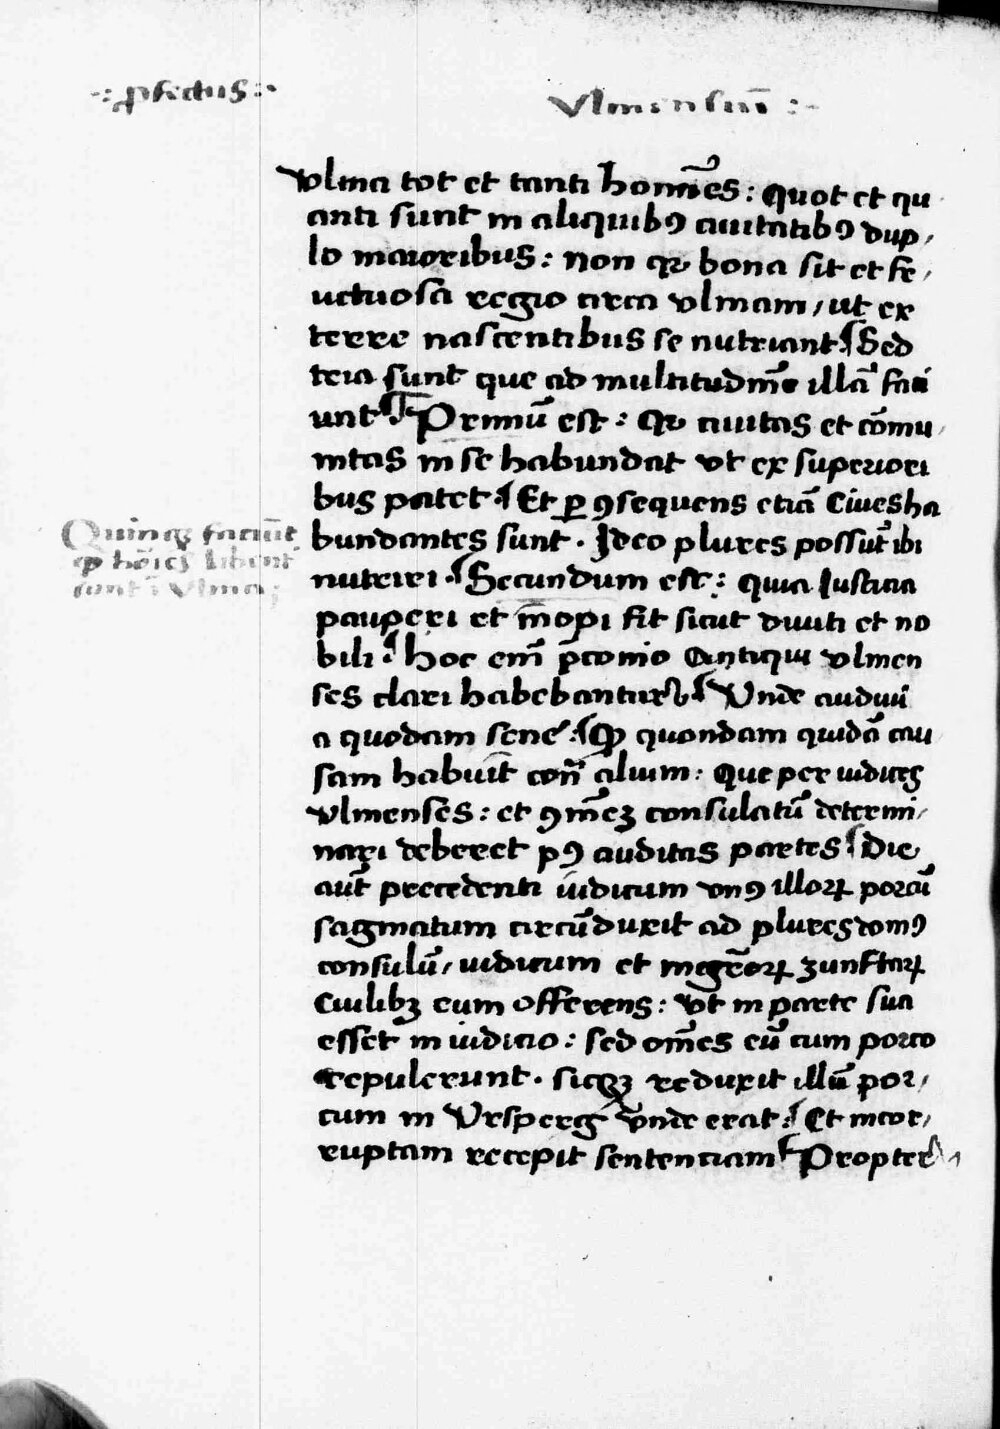 ·:ꝓfectus:·
Vlmensiū :·
vlma tot et tanti homīes: quot et qu
anti sunt in aliquibꝰ ciuitatibꝰ dup,
lo maioribus: non qꝛ bona sit et fr,
uctuosa regio circa vlmam, ut ex
terre nascentibus se nutriant. Sed
tria sunt que ad multitudinē illā faci
unt. Primū est: Qꝛ ciuitas et cōmu,
nitas in se habundat vt ex superiori
bus patet. Et ꝑ ꝯsequens etiā Ciues ha
bundantes sunt. Ideo plures possūt ibi
nutriri. Secundum est: quia Iusticia
pauperi et īnopi fit sicut diuiti et no
bili. hoc enī p̄conio Antiqui vlmen
ses clari habebantur. Vnde audiui
a quodam sene. Qꝫ quondam quidā cau
sam habuit contͣ alium: Que per iudices
vlmenses: et ꝯmūeꝫ consulatū determi,
nari deberet pꝰ auditas partes. Die
aūt precedenti iudicium vnꝰ illoꝝ porcū
sagmatum circūduxit ad plures domꝰ
consulū, iudicum et mgr̄oꝝ zunftaꝝ
Cuilibꝫ eum offerens: vt in parte sua
esset in iudicio: sed om̄es eū cum porco
repulerunt. sicqꝫ reduxit illū por,
cum in Vrsperg vnde erat. Et incor,
ruptam recepit sentenciam. Propter
Quinqꝫ faciūt
qꝫ hōīes libent̄
sunt ī Vlma;